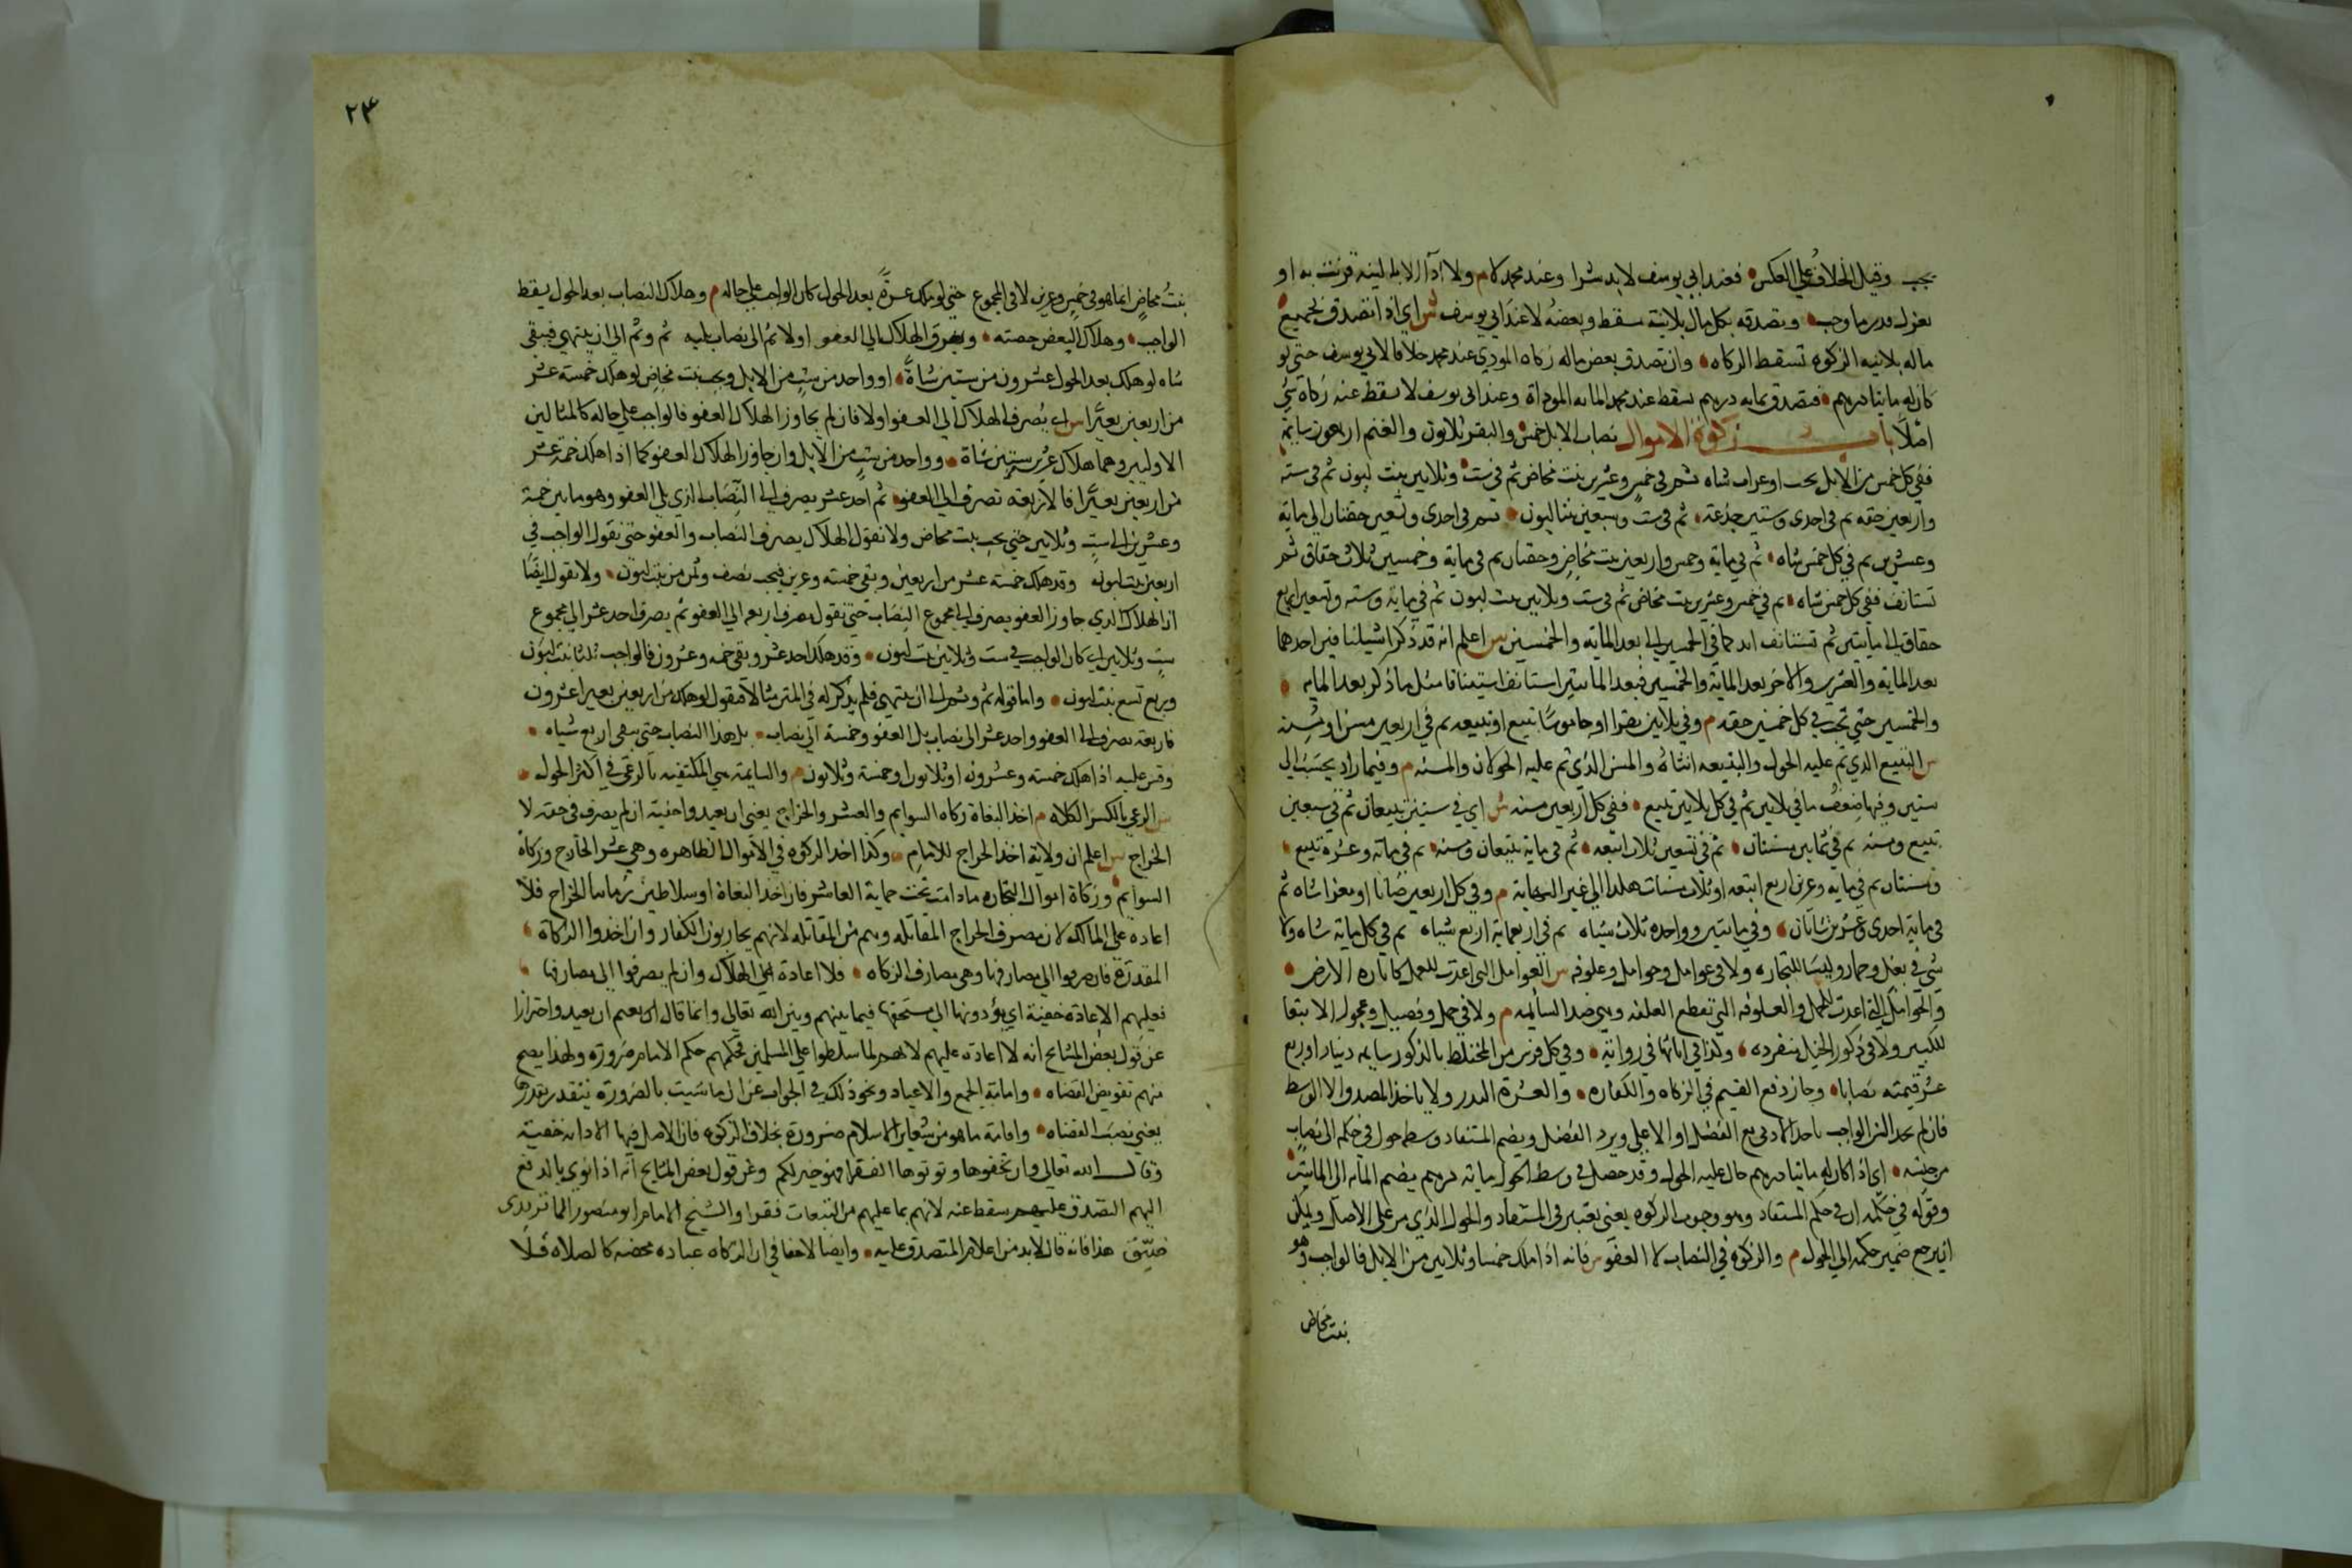 يجب وقيل الخلاف على العكس فعند ابي يوسف لا بد شرا وعند محمد كلا م ولا ادآ الا بالنية قرنت به او
بعزل قدر ما وجب وتصدقه بكل مال بلا نية سقط وبعضه لا عند ابي يوسف ش اي اذا تصدق بجميع
ماله بلا نيه الزكوه تسقط الزكاه وان تصدق بعض ماله زكاه المودي عند محمد خلافا لابي يوسف حتي لو
كان له مايتا درهم فتصدق بمايه درهم سقط عند محمد المايه الموداة وعند ابي يوسف لا سقط عنه زكاة شي
اصلا باب زكوة الاموال نصاب الابل خمس والبقر ثلاثون والغنم اربعون سايمة
ففي كل خمس من الابل بخت او عراب شاه ثم في خمس وعشرين بنت مخاض ثم في ست وثلاثين بنت لبون ثم في سته
واربعين حقه ثم في احدى وستين جذعة ثم في ست وسبعين بنتا لبون ثم في احدى وتسعين حقتان الي ماية
وعشرين ثم في كل خمس شاه ثم في ماية وخمس واربعين بنت مخاض وحقتان ثم في ماية وخمسين ثلاث حقاق ثم
تستانف ففي كل خمس شاه ثم في خمس وعشرين بنت مخاض ثم في ست وثلاثين بنت لبون ثم في ماية وسته وتسعين اربع
حقاق الي مايتين ثم تستانف ابدا كما في الخمسين التي بعد الماية والخمسين ش اعلم انه قد ذكر استينافين احدهما
بعد الماية والعشرين والاخر بعد الماية والخمسين فبعد المايتين استانف استينافا مثل ما ذكر بعد الماية
والخمسين حتي تجب في كل خمسين حقه م وفي ثلاثين بقرا او جاموسا تبيع او تبيعه ثم في اربعين مسن او مسنه
ش التبيع الذي تم عليه الحول والتبيعه انثاه والمسن الذي تم عليه الحولان والمسنه م وفيما زاد يحسب الي
ستين وفيها ضعف ما في ثلاثين ثم في كل ثلاثين تبيع ففي كل اربعين مسنه ش اي في ستين تبيعان ثم في سبعين
تبيع ومسنه ثم في ثمانين مسنتان ثم في تسعين ثلاث اتبعه ثم في ماية تبيعان ومسنه ثم في ماية وعشرة تبيع
ومسنتان ثم في مايه وعشرين اربع اتبعه او ثلاث مسنات هكذا الي غير النهاية م وفي كل اربعين ضانا او معزا شاه ثم
في ماية احدى وعشرين شاتان وفي مايتين وواحده ثلاث شياه ثم في اربعماية اربع شياه ثم في كل ماية شاه ولا
شي في بغل وحمار وليسا للتجاره ولا في عوامل وحوامل وعلوفه ش العوامل التي اعدت للعمل كاثارة الارض
والحوامل التي اعدت للحمل والعلوفه التي تعطي العلف وهي ضد السايمه م ولا في حمل وفصيل وعجول الا تبعا
للكبير ولا في ذكور الخيل منفرده وكذا في اناثها في رواية وفي كل فرس من المختلط بالذكور سايمه دينار او ربع
عشر قيمته نصابا وجاز دفع القيم في الزكاه والكفاره والعشر والنذر ولا ياخذ المصدق الا الوسط
فان لم يجد السن الواجب ياخذ الادنى مع الفضل او الاعلي ويرد الفضل ويضم المستفاد وسط حول في حكمه الى نصاب
من جنسه اي اذا كان له مايتا درهم حال عليه الحول وقد حصل في وسط الحول ماية درهم يضم الماية الى المايتين
وقوله في حكمه اي في حكم المستفاد وهو وجوب الزكوه يعني يعتبر في المستفاد والحول الذي مر على الاصل ويمكن
ان يرجع ضمير حكمه الي الحول م والزكوة في النصاب لا العفو ش فانه اذا ملك خمسا وثلاثين من الابل فالواجب وهو
بنت مخاض
٢٣
بنت مخاض انما هو في خمس وعشرين لا في المجموع حتي لو هلك عشرة بعد الحول كان الواجب علي حاله م وهلاك النصاب بعد الحول يسقط
الواجب وهلاك البعض حصته ويصرف الهلاك الي العفو اولا ثم الى نصاب يليه ثم وثم الي ان ينتهي فيبقى
شاه لو هلك بعد الحول عشرون من ستين شاة او واحد من ست من الابل وتجب بنت مخاض لو هلك خمسة عشر
من اربعين بعيرا ش اي يصرف الهلاك الي العفو اولا فان لم يجاوز الهلاك العفو فالواجب علي حاله كالمثالين
الاولين وهما هلاك عشرين من ستين شاة وواحد من ست من الابل وان جاوز الهلاك العفو كما اذا هلك خمسة عشر
من اربعين بعيرا فالاربعة تصرف الي العفو ثم احد عشر يصرف الي النصاب الذي يلي العفو وهو ما بين خمسة
وعشرين الي ست وثلاثين حتي يجب بنت مخاض ولا نقول الهلاك يصرف النصاب والعفو حتى نقول الواجب في
اربعين بنت لبون وقد هلك خمسة عشر من اربعين وبقي خمسة وعشرين فيجب نصف وثمن من بنت لبون ولا نقول ايضا
ان الهلاك الذي جاوز العفو يصرف الي مجموع النصاب حتي نقول يصرف اربعه الي العفو ثم يصرف احد عشر الي مجموع
ست وثلاثين اي كان الواجب في ست وثلاثين بنت لبون وقد هلك احد عشر وبقي خمسه وعشرون فالواجب ثلثا بنت لبون
وربع تسع بنت لبون واما قوله ثم وثم الي ان ينتهي فلم يذكر له في المتن مثالا فنقول لو هلك من اربعين بعيرا عشرون
فاربعة يصرف الي العفو واحد عشر الى نصاب يلي العفو وخمسة الي نصاب يلي هذا النصاب حتى يبقى اربع شياه
وقس عليه اذا هلك خمسه وعشرون او ثلاثون او خمسة وثلاثون م والسايمة هي المكتفيه بالرعي في اكثر الحول
ش الرعي بالكسر الكلاه م اخذ البغاة زكاه السوايم والعشر والخراج يفتى ان يعيدوا خفية ان لم يصرف في حقه لا
الخراج ش اعلم ان ولاية اخذ الخراج للامام وكذا اخذ الزكوه في الاموال الظاهره وهي عشر الخارج وزكاة
السوايم وزكاة اموال التجاره ما دامت تحت حماية العاشر فان اخذ البغاة او سلاطين زماننا الخراج فلا
اعاده علي المالك لان مصرف الخراج المقاتله وهم من المقاتله لانهم يحاربون الكفار وان اخذوا الزكاة
المقدرة فان صرفوا الي مصارفها وهي مصارف الزكاه فلا اعادة علي الملاك وان لم يصرفوا الي مصارفها
فعليهم الاعادة خفية اي يؤدونها الي مستحقها فيما بينهم وبين الله تعالى وانما قال يفتى ان يعيدوا احترازا
عن قول بعض المشايخ انه لا اعاده عليهم لانهم لما سلطوا علي المسلمين فحكمهم حكم الامام ضرورة ولهذا يصح
منهم تفويض القضاه واقامة الجمع والاعياد ونحو ذلك في الجواب عنه ان ما تثبت بالضرورة يتقدر بقدرها
يعني نصب القضاه واقامة ما هو من شعاير الاسلام ضرورة بخلاف الزكوه فان الاصل فيها الادا خفية
وقال الله تعالي وان تخفوها وتوتوها الفقرا فهو خير لكم وعن قول بعض المشايخ انه اذا نوى بالدفع
اليهم التصدق عليهم سقط عنه لانهم بما عليهم من التبعات فقرا والشيخ الامام ابو منصور الماتريدى
ضيّق هذا فانه قال لا بد من اعلام المتصدق عليه وايضا لا خفا في ان الزكاه عباده محضه كالصلاه فلا